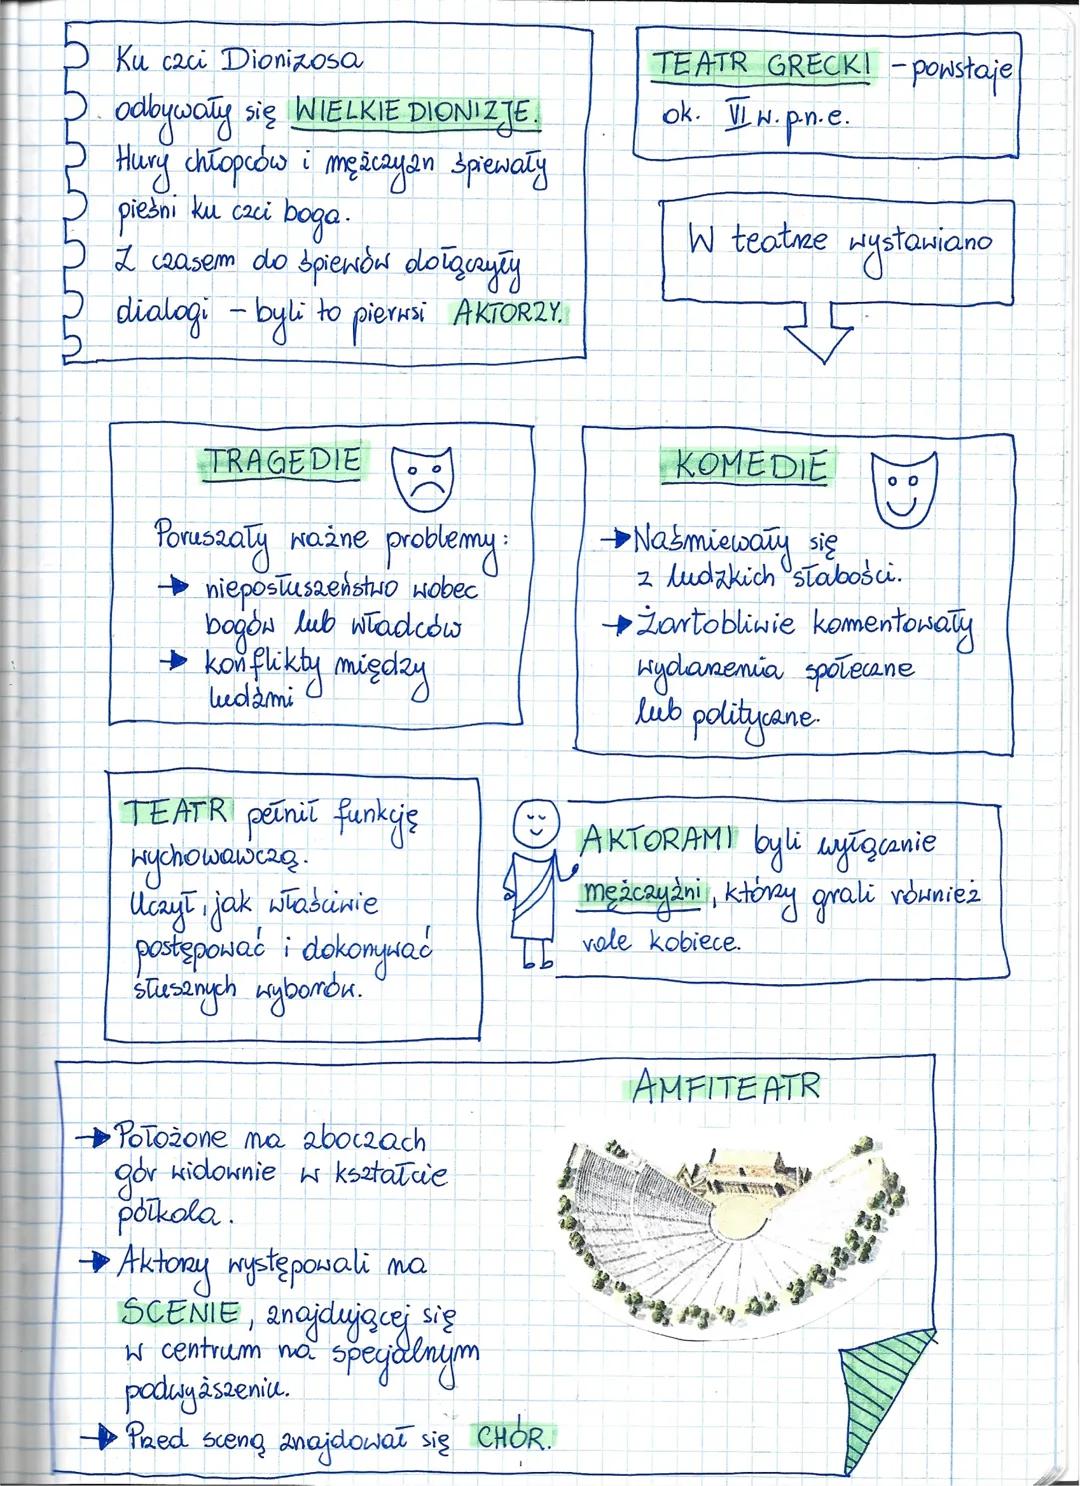 Ku czci Dionizosa
odbywały się WIELKIE DIONIZJE.
Hury chłopców i mężczyzn śpiewały
pieśni ku czci boga.
Z czasem do śpiewów dołączyły
dialogi – byli to pierwsi AKTORZY.
TEATR GRECKI – powstaje
ok. VI w. p.n.e.
W teatrze wystawiano
TRAGEDIE
Poruszały ważne problemy:
→ nieposłuszeństwo wobec
bogów lub władców
→ konflikty między
ludźmi
KOMEDIE
→ Naśmiewały się
z ludzkich słabości.
→ Żartobliwie komentowały
wydarzenia społeczne
lub polityczne.
TEATR pełnił funkcję
wychowawczą.
Uczył, jak właściwie
postępować i dokonywać
słusznych wyborów.
AKTORAMI byli wyłącznie
mężczyźni, którzy grali również
role kobiece.
AMFITEATR
→ Położone na zboczach
gór widownie w kształcie
półkola.
→ Aktorzy występowali na
SCENIE, znajdującej się
w centrum na specjalnym
podwyższeniu.
→ Przed sceną znajdował się CHÓR.